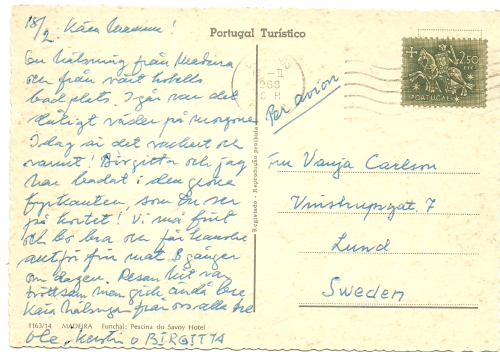 18/2. Kära Mamma!
Portugal Turístico
En hälsning från Madeira
och från vårt hotells
badplats. I går var det
dåligt väder på morgonen
I dag är det vackert och
varmt! Birgitta och jag
har badat i den
som Du ser
på kortet! Vi må fint
och bo bra och får
för mat 3 gånger
om dagen. Resan hit var
tröttsam men gick ändå bra
Kära hälsningar från oss alla tre
Olle, Kerstin o BIRGITTA
1163/14 MADEIRA Funchal: Pescina do Savoy Hotel
Registado - Reprodução proibida
Par avion
2$50
PORTUGAL
Fru Vanja Carlson
Vinstrupsgat. 7
Lund
Sweden